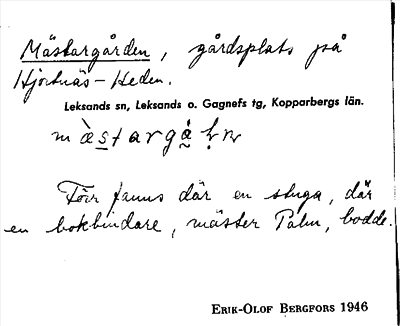 Mästargården, gårdsplats på
Hjortnäs-Heden.
Leksands sn, Leksands o. Gagnefs tg, Kopparbergs län.
Förr fanns där en stuga, där
en bokbindare, mäster Palm, bodde.
ERIK-OLOF BERGFORS 1946